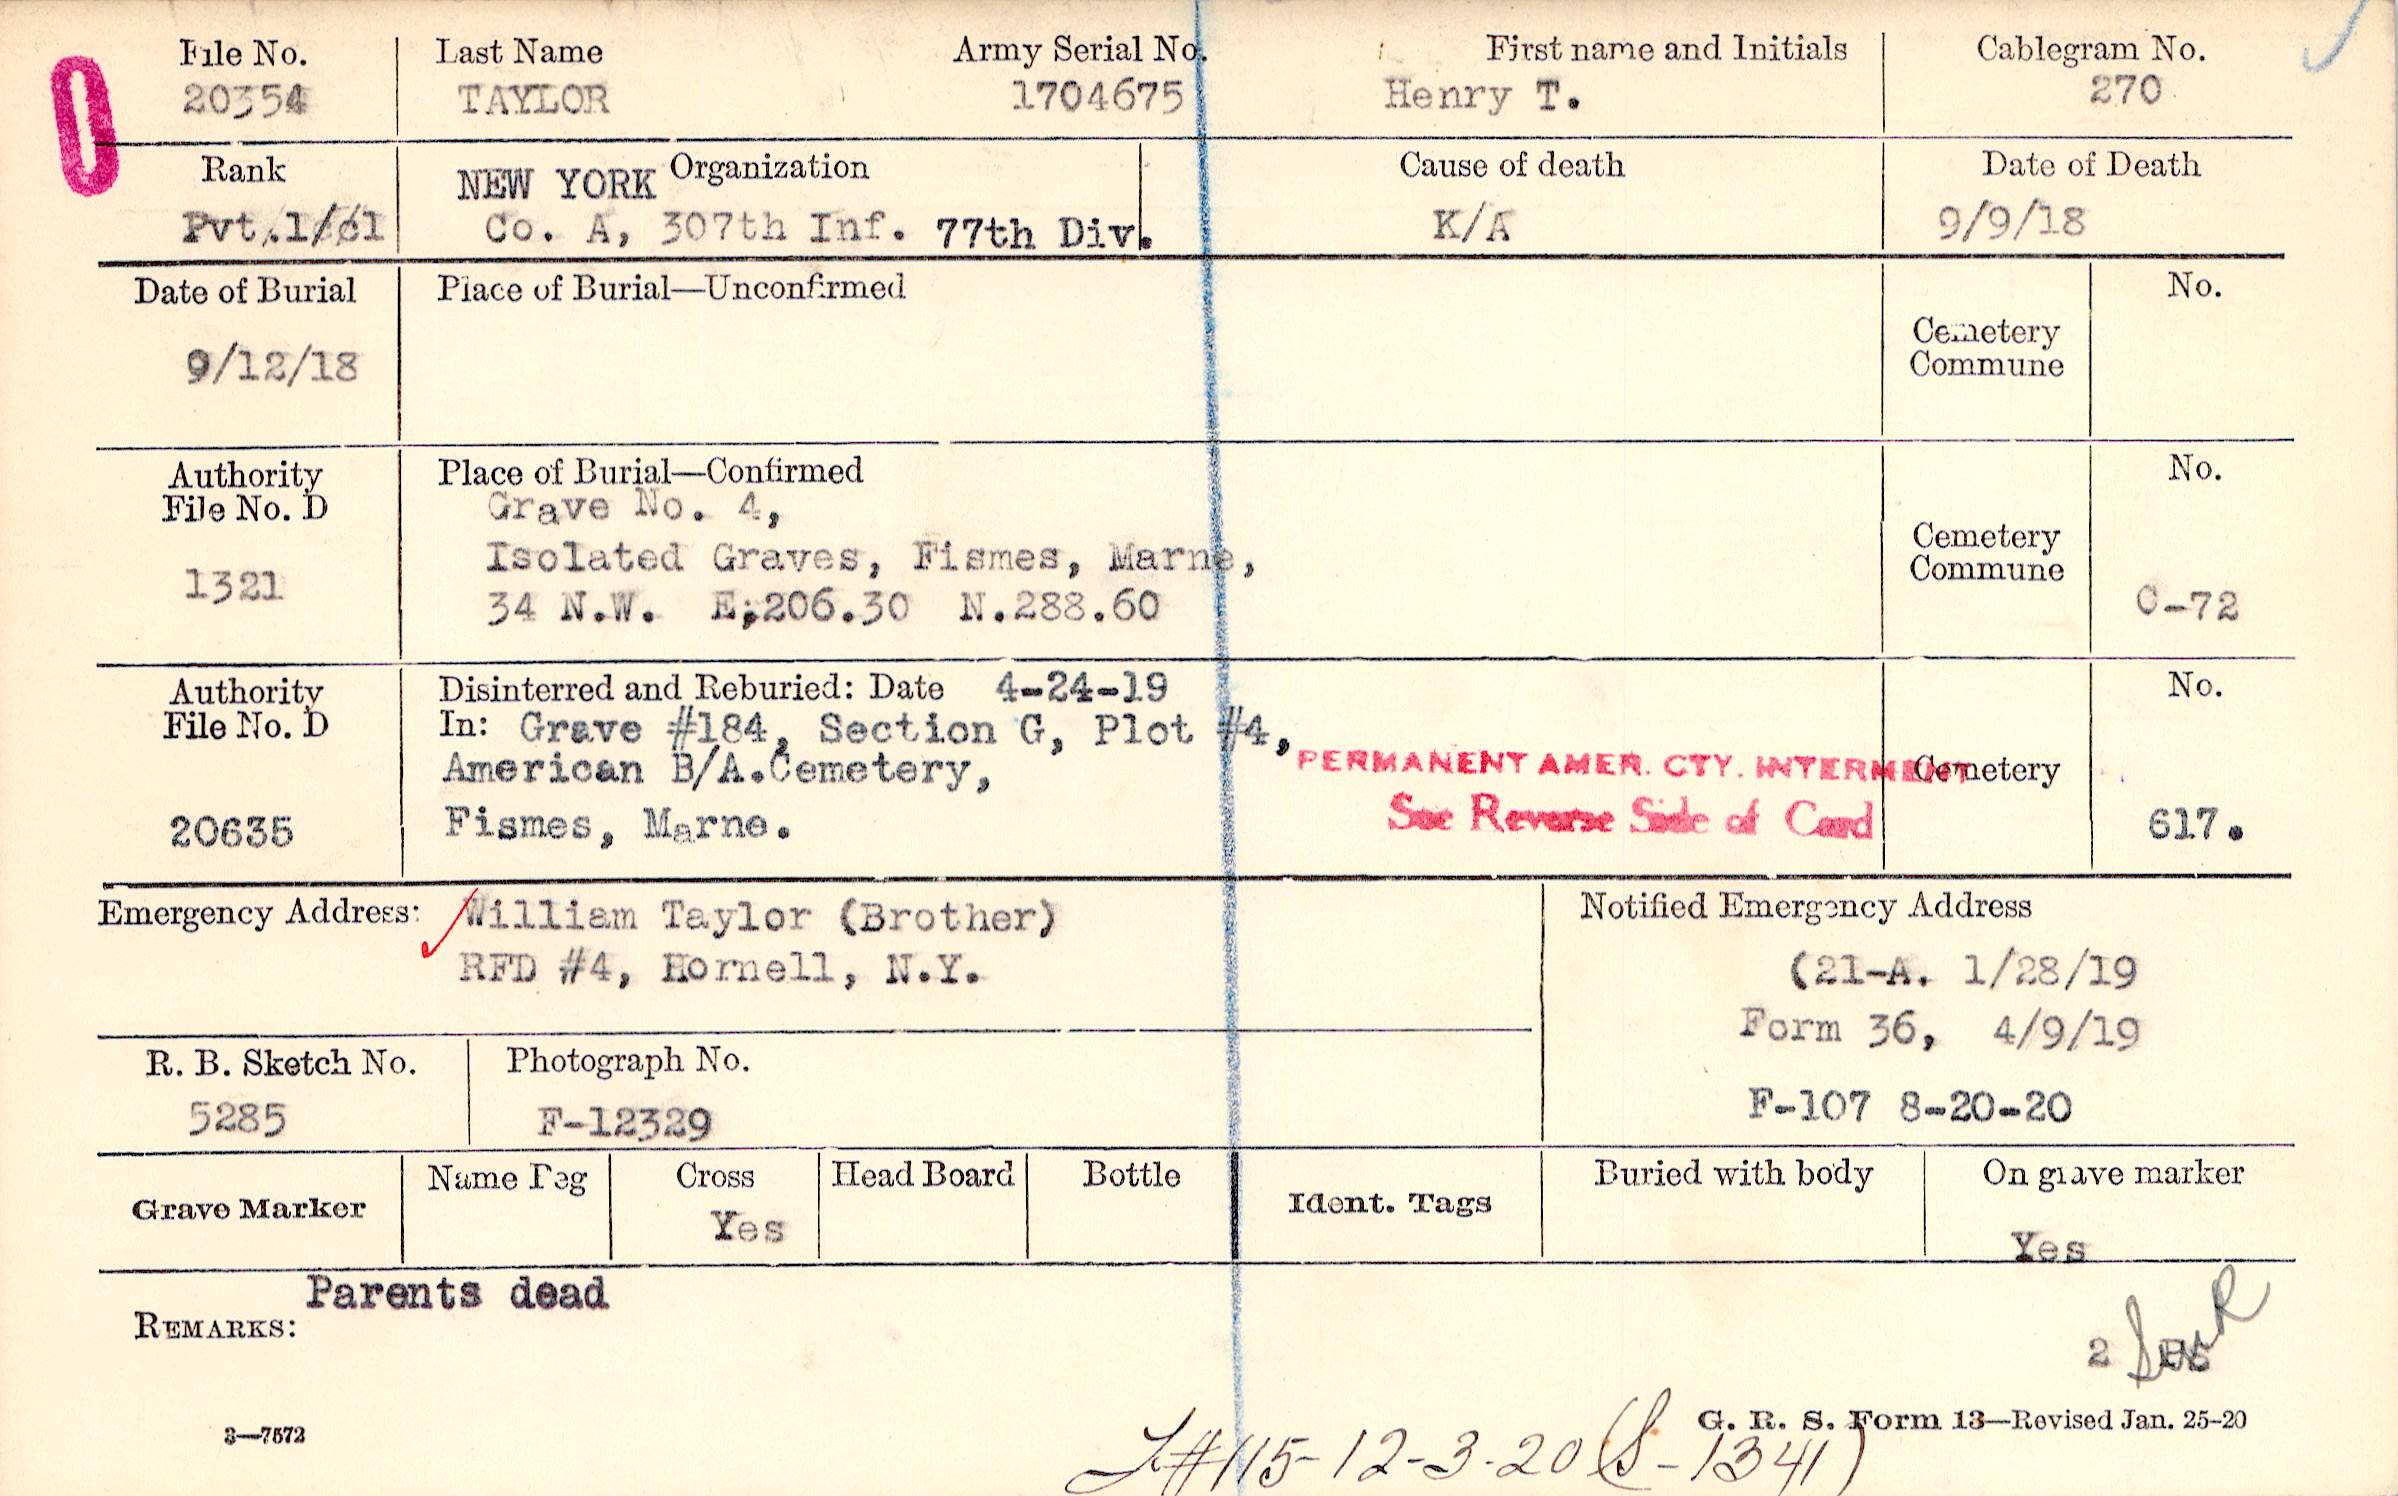 File No. Last Name Army Serial No. First name and Initials Cablegram No.
20354 TAYLOR 1704675 Henry T. 270
Rank NEW YORK Organization Cause of death Date of Death
Pvt.1/cl Co. A, 307th Inf. 77th Div. K/A 9/9/18
Date of Burial Place of Burial—Unconfirmed No.
9/12/18 Cemetery
Commune
Authority Place of Burial—Confirmed No.
File No. D Grave No. 4,
Isolated Graves, Fismes, Marne, Cemetery
1321 34 N.W. E;206.30 N.288.60 Commune C-72
Authority Disinterred and Reburied: Date 4-24-19 No.
File No. D In: Grave #184, Section G, Plot #4,
American B/A.Cemetery, PERMANENT AMER. CTY. INTERMENT Cemetery
20635 Fismes, Marne. See Reverse Side of Card 617.
Emergency Address: William Taylor (Brother) Notified Emergency Address
RFD #4, Hornell, N.Y. (21-A. 1/28/19
Form 36, 4/9/19
R. B. Sketch No. Photograph No.
5285 F-12329 F-107 8-20-20
Grave Marker Name Peg Cross Head Board Bottle Ident. Tags Buried with body On grave marker
Yes Yes
Parents dead
REMARKS:
2
3—7572 G. R. S. Form 13—Revised Jan. 25-20
L#115-12-3-20 (S-1341)